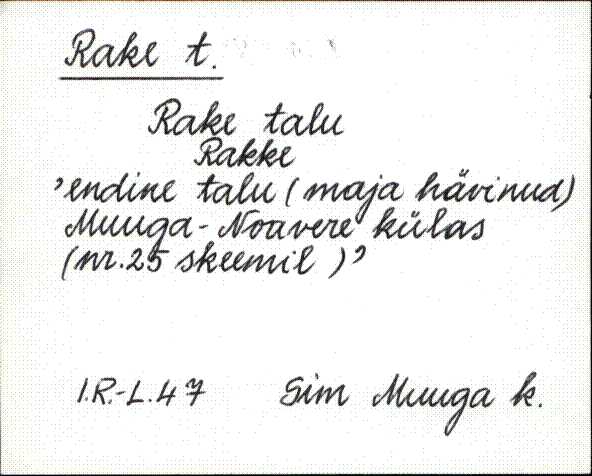 Rake t.
Rake talu
Rakke
’endine talu (maja hävinud)
Muuga-Noavere külas
(nr.25 skeemil)’
I.R.-L.47 Sim Muuga k.